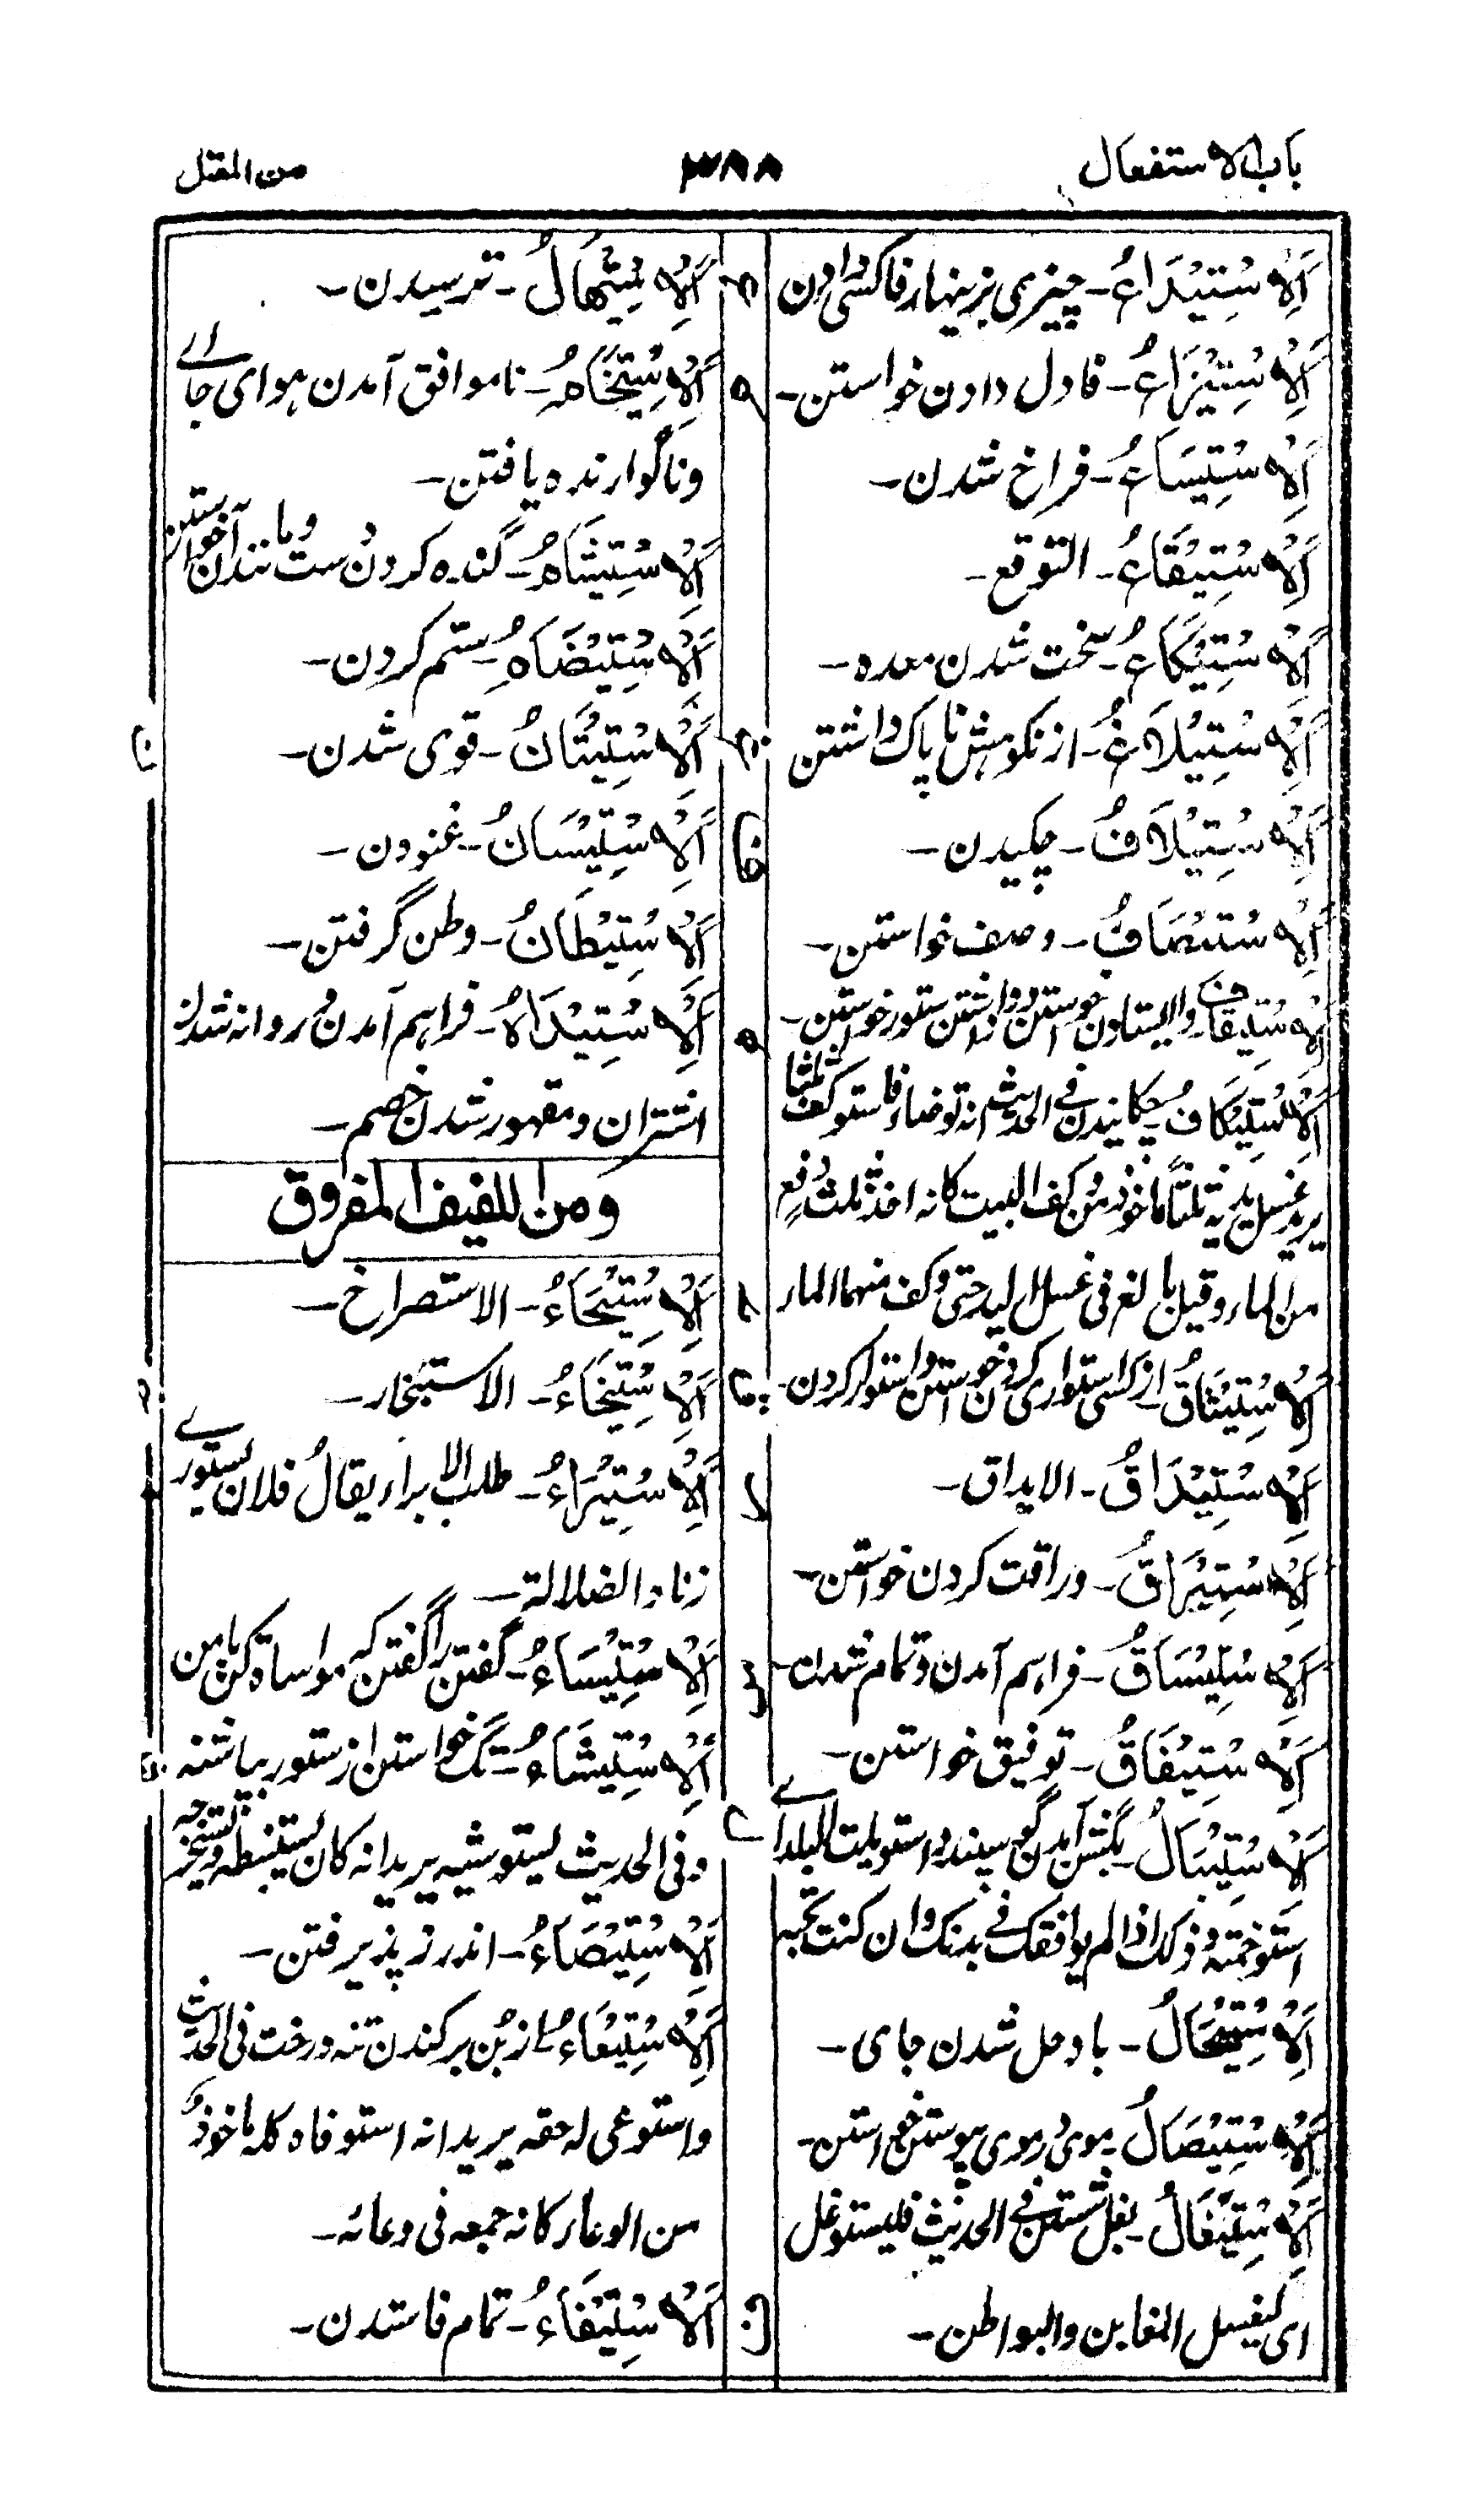 باب الاستفعال
٣٨٨
من المقتل
اَلْاِسْتِيْدَاعُ۔ چیزی بزینهار فاکسی دادن
اَلْاِسْتِيْزَاعُ۔ فادل دادن خواستن۔
اَلْاِسْتِيْسَاعُ۔ فراخ شدن۔
اَلْاِسْتِيْقَاعُ۔ التوقع۔
اَلْاِسْتِيْكَاعُ۔ سخت شدن معده۔
اَلْاِسْتِيْلَاغُ۔ از نکوهش ناپاک داشتن
اَلْاِسْتِيْلَافُ۔ چکیدن۔
اَلْاِسْتِيْصَافُ۔ وصف خواستن۔
اَلْاِسْتِيْقَافُ۔ والیستادن خواستن و واداشتن ستور خواستن۔
اَلْاِسْتِيْكَافُ۔ چکانیدن فی الحدیث انه توضاء فاستوکف ثلثا
یرید غسل یدیه ثلثا ماخوذ من وکف البیت کانه اخذ ثلث دفع
من الماء وقیل بالغ فی غسل الید حتی وکف منهما الماء
اَلْاِسْتِيْثَاقُ۔ از کسی استواری کردن خواستن و استوار کردن۔
اَلْاِسْتِيْدَاقُ۔ الایداق۔
اَلْاِسْتِيْرَاقُ۔ وراقت کردن خواستن۔
اَلْاِسْتِيْسَاقُ۔ فراهم آمدن و تمام شدن
اَلْاِسْتِيْفَاقُ۔ توفیق خواستن۔
اَلْاِسْتِيْبَالُ۔ بگشن آمدن گوسپند و استوبلت البلد ای
استوخمته وذلک اذا لم یوافقک فی بدنک وان کنت تحبه
اَلْاِسْتِيْحَالُ۔ با وحل شدن جای۔
اَلْاِسْتِيْصَالُ۔ موی در موی پیوستن خواستن۔
اَلْاِسْتِيْغَالُ۔ بغل شستن فی الحدیث فلیستوغل
ای لیغسل المغابن والبواطن۔
اَلْاِسْتِيْهَالُ۔ ترسیدن۔
اَلْاِسْتِيْخَامُ۔ ناموافق آمدن هوای جاے
وناگوارنده یافتن۔
اَلْاِسْتِيْشَامُ۔ گنده کردن دست و مانند آن خواستن
اَلْاِسْتِيْضَامُ۔ ستم کردن۔
اَلْاِسْتِيْثَانُ۔ قوی شدن۔
اَلْاِسْتِيْسَانُ۔ غنودن۔
اَلْاِسْتِيْطَانُ۔ وطن گرفتن۔
اَلْاِسْتِيْدَاهُ۔ فراهم آمدن و روانه شدن
اشتران و مقهور شدن خصم۔
ومن اللفیف المفروق
اَلْاِسْتِيْحَاءُ۔ الاستصراخ۔
اَلْاِسْتِيْخَاءُ۔ الاستخبار۔
اَلْاِسْتِيْرَاءُ۔ طلب الابراء یقال فلان یستوری
زناد الضلالة۔
اَلْاِسْتِيْسَاءُ۔ گفتن را گفتن که مواساة کن بامن
اَلْاِسْتِيْشَاءُ۔ تگ خواستن از ستور بپاشنه
وفی الحدیث یستوشیه یرید انه کان یستنبطه ویستخرجه
اَلْاِسْتِيْصَاءُ۔ اندرز پذیرفتن۔
اَلْاِسْتِيْعَاءُ۔ از بن برکندن تنه درخت فی الحدیث
واستوعی له حقه یرید انه استوفاه کله ماخوذ
من الوعاء کانه جمعه فی وعائه۔
اَلْاِسْتِيْفَاءُ۔ تمام فاستدن۔